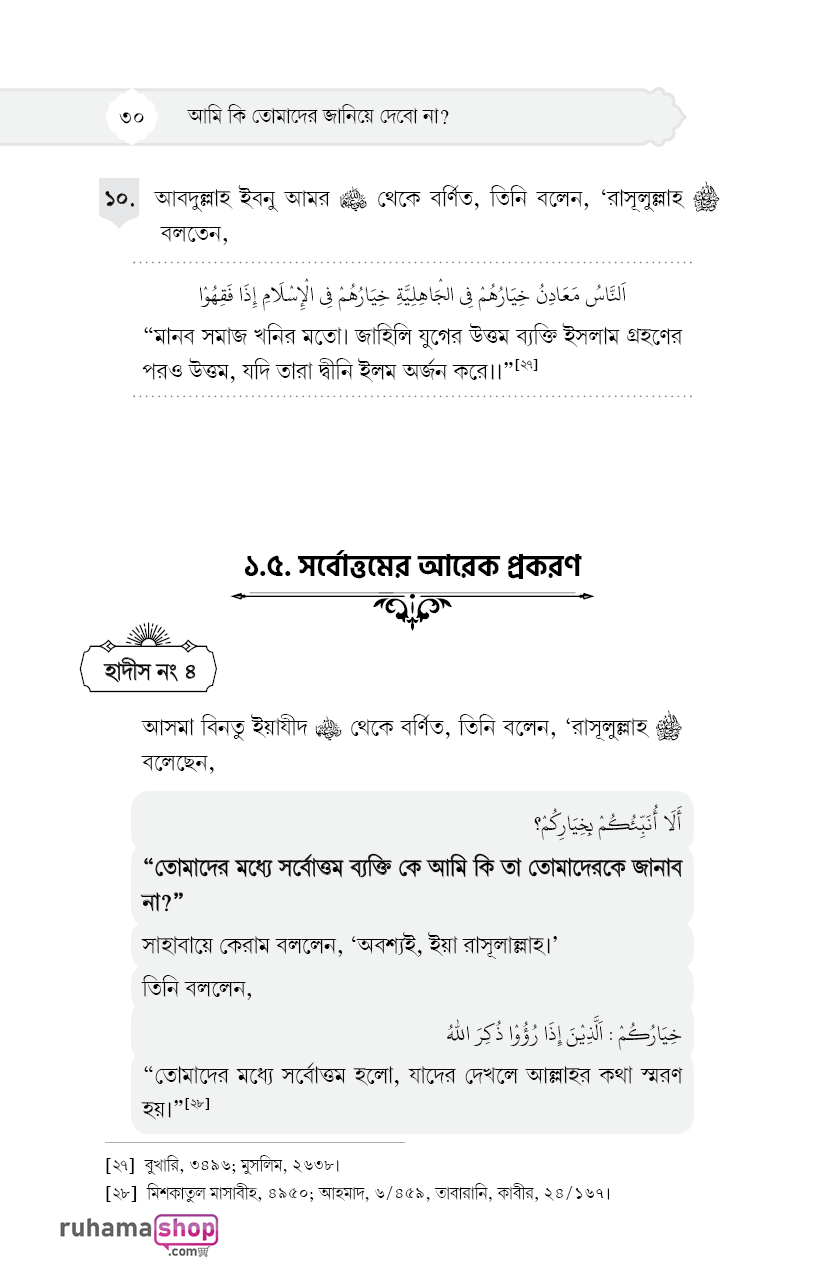 ৩০ আমি কি তোমাদের জানিয়ে দেবো না?
১০. আবদুল্লাহ ইবনু আমর ﵁ থেকে বর্ণিত, তিনি বলেন, ‘রাসূলুল্লাহ ﷺ
বলতেন,
اَلنَّاسُ مَعَادِنُ خِيَارُهُمْ فِي الْجَاهِلِيَّةِ خِيَارُهُمْ فِي الْإِسْلَامِ إِذَا فَقِهُوْا
“মানব সমাজ খনির মতো। জাহিলি যুগের উত্তম ব্যক্তি ইসলাম গ্রহণের
পরও উত্তম, যদি তারা দ্বীনি ইলম অর্জন করে।।”[২৭]
১.৫. সর্বোত্তমের আরেক প্রকরণ
হাদীস নং ৪
আসমা বিনতু ইয়াযীদ থেকে বর্ণিত, তিনি বলেন, ‘রাসূলুল্লাহ ﷺ
বলেছেন,
أَلَا أُنَبِّئُكُمْ بِخِيَارِكُمْ؟
“তোমাদের মধ্যে সর্বোত্তম ব্যক্তি কে আমি কি তা তোমাদেরকে জানাব
না?”
সাহাবায়ে কেরাম বললেন, ‘অবশ্যই, ইয়া রাসূলাল্লাহ।’
তিনি বললেন,
خِيَارُكُمْ : اَلَّذِيْنَ إِذَا رُؤُوْا ذُكِرَ اللهُ
“তোমাদের মধ্যে সর্বোত্তম হলো, যাদের দেখলে আল্লাহর কথা স্মরণ
হয়।”[২৮]
[২৭] বুখারি, ৩৪৯৬; মুসলিম, ২৬৩৮।
[২৮] মিশকাতুল মাসাবীহ, ৪৯৫০; আহমাদ, ৬/৪৫৯, তাবারানি, কাবীর, ২৪/১৬৭।
ruhamashop
.com